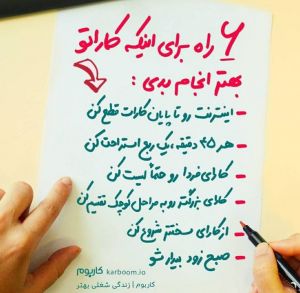 ۶ راه برای اینکه کاراتو
بهتر انجام بدی :
- اینترنت رو تا پایان کارات قطع کن
- هر ۴۵ دقیقه، یک ربع استراحت کن
- کارای فردا رو حتماً لیست کن
- کارای بزرگتر رو به مراحل کوچک تقسیم کن
- از کارای سخت‌تر شروع کن
- صبح زود بیدار شو
karboom.io کاربوم
کاربوم | زندگی شغلی بهتر